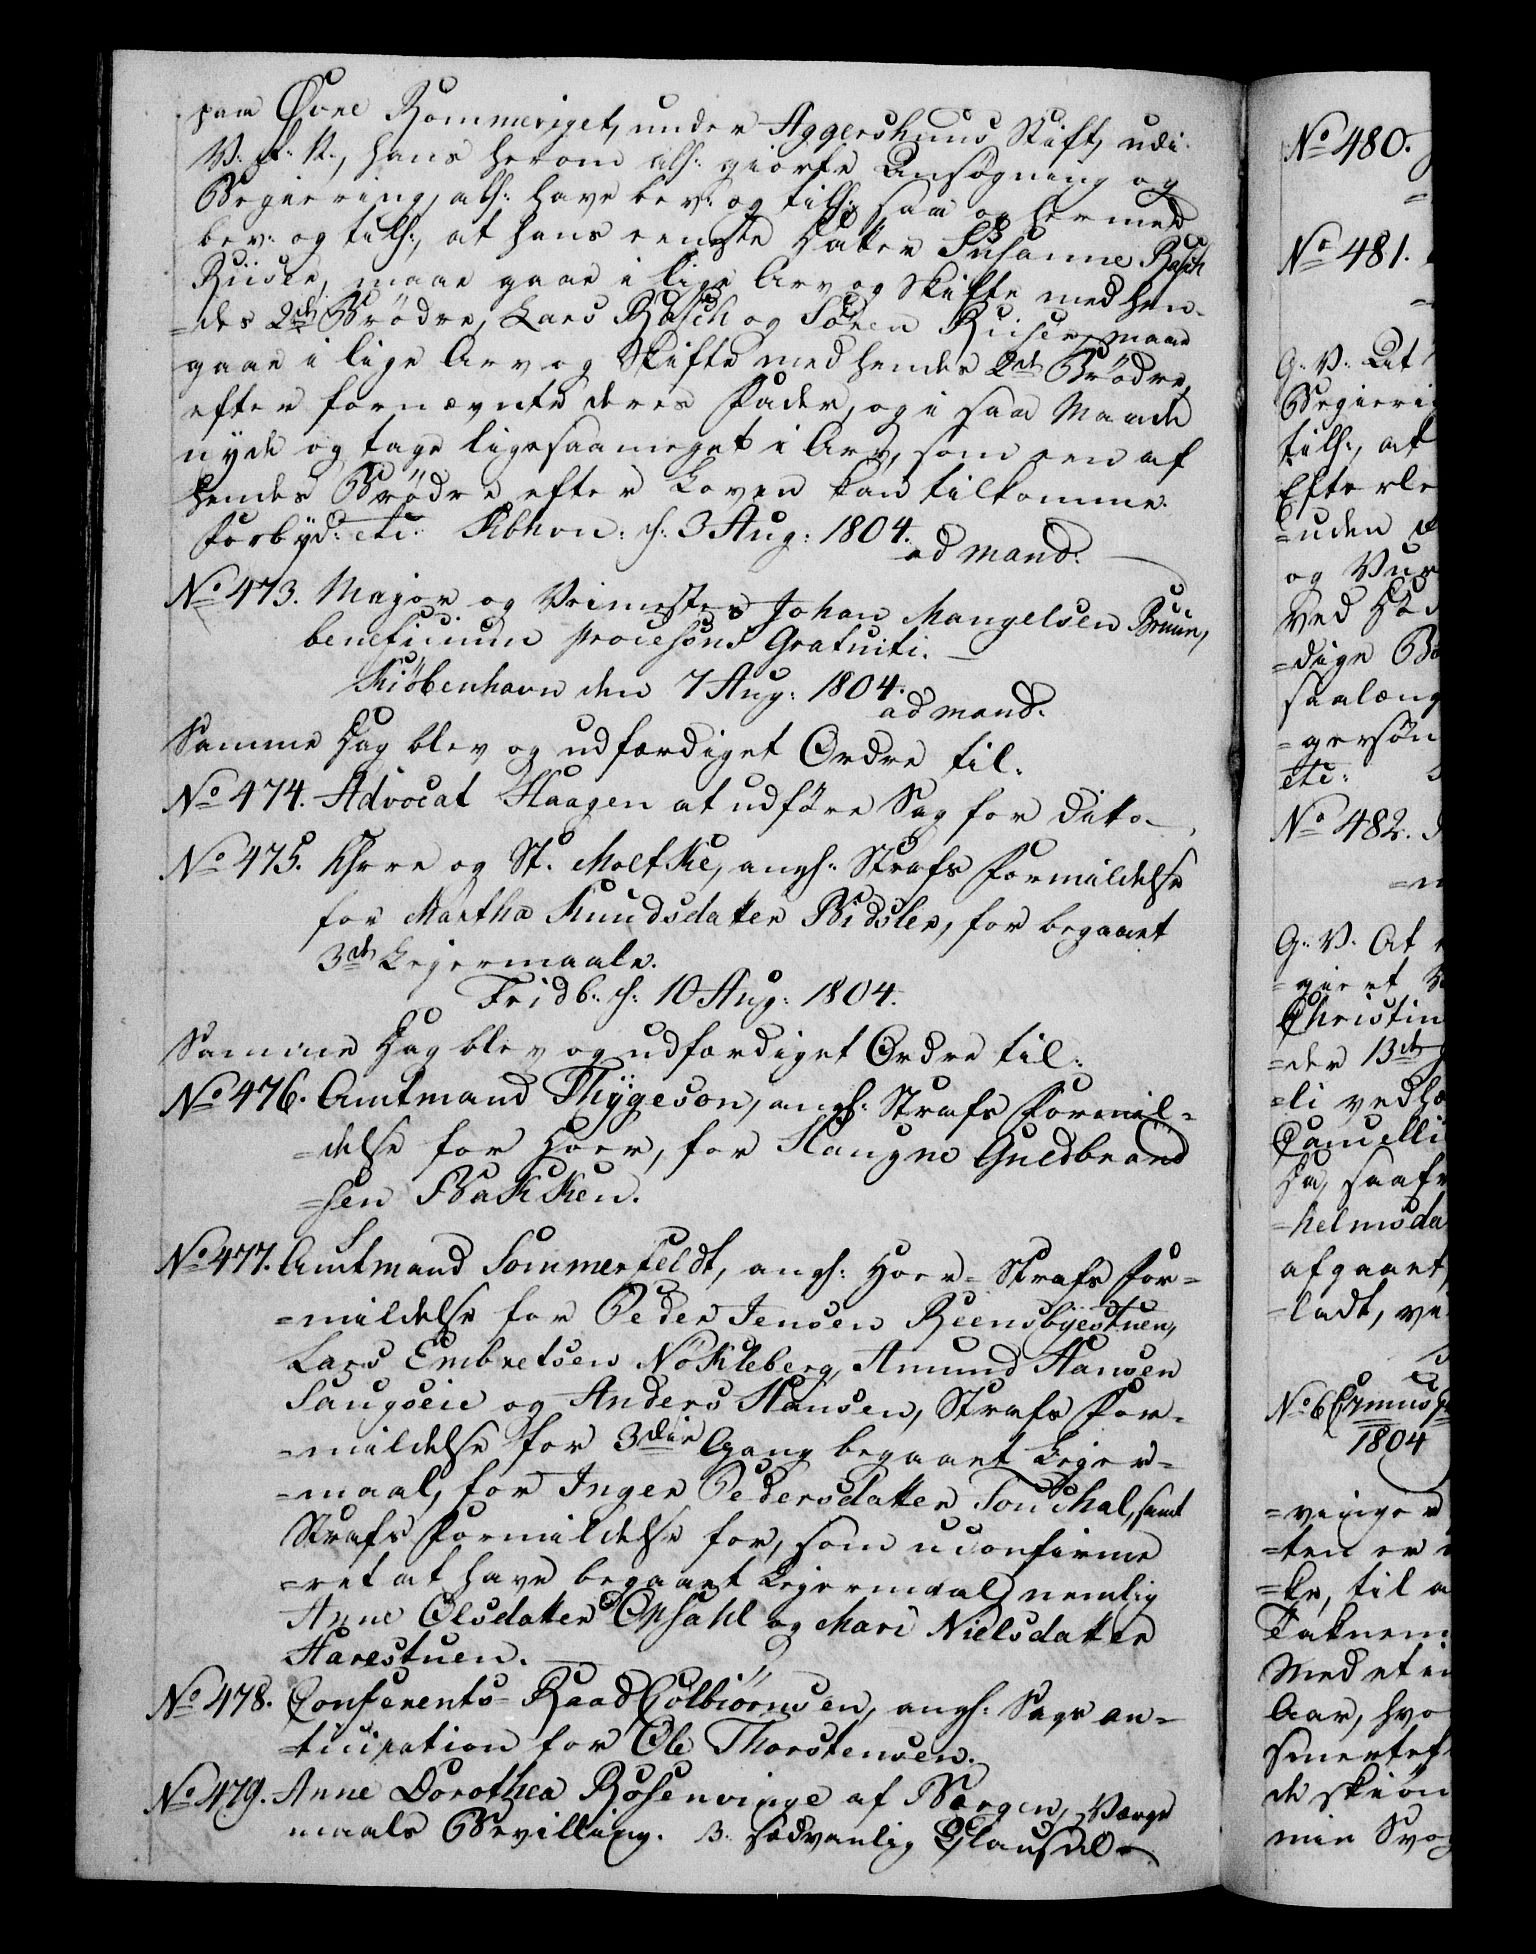 paa Övre Rommeriget, under Aggershuus Stift, udi
V: R: N:, hans herom alh: giorte Ansøgning og
Begiering, alh: have bev: og tilh: saa og hermed
bev: og tilh:, at hans eeneste Datter Susanne Rasch
Riiser, maae gaae i lige Arv og Skifte med hen-
=des 2de Brödre, Lars Rasch og Sören Riiser, maae
gaae i lige Arv og Skifte med hendes 2de Brödre,
efter fornævnte deres Fader, og i saa Maade
nyde og tage ligesaameget i Arv, som een af
hendes Brödre efter Loven kan tilkomme.
Forbyd: etc: Kbhvn: d: 3 Aug: 1804.
ad mand:
No 473. Major og Veimester Johan Mangelsen Bruun,
beneficium processus Gratuiti.
Kiöbenhavn den 7 Aug: 1804.
ad mand:
Samme Dag blev og udfærdiget Ordre til:
No 474. Advocat Haagen at udföre Sag for dito
No 475. Hrr og St. Moltke, angh: Strafs Formildelse
for Martha Knudsdatter Bidsler, for begaaet
3de Leyermaale.
Fridb: d: 10 Aug: 1804.
Samme Dag blev og udfærdiget Ordre til:
No 476. Amtmand Thÿgeson, angh: Strafs Formil=
=delse for Hoer, for Haugne Guldbrand
=sen Bakken.
No 477. Amtmand Sommerfeldt, angh: Hoer= Strafs For=
=mildelse for Peder Jensen Reensbÿestuen,
Lars Embretsen Nökleberg, Amund Hansen
Saugseie og Anders Hansen, Strafs For=
=mildelse for 3die Gang begaaet Leyer=
=maal, for Inger Pedersdatter Sondhal, samt
Strafs Formildelse for, som uconfirme
=ret at have begaaet Leyermaal, nemlig
Anne Olsdatter Opsahl og Mari Nielsdatter
Harestuen.
No 478. Conferents=Raad Colbiörnsen, angh: Sags an=
=ticipation for Ole Thorstensen.
No 479. Anne Dorothea Rosenvinge af Bergen, Værge
maals Bevilling. B. sædvanlig Clausul
No 480.
No 481.
G: V: At
Begieri
tilh:, at
Efterle
=uden
og Vur
ved
=dige
saalæng
=gersön
etc:
No 482.
G: V: At
=gieret
Christin
=der 13de
=li vedhæ
Cancelli
Da, saafr
=helmsda
afgaaet,
=ladt, ve
No 6
1804
=vinger
=ten er
=ke, til a
Taknem
Med et in
Aar, hvo
smertef
de skiön
min Svog